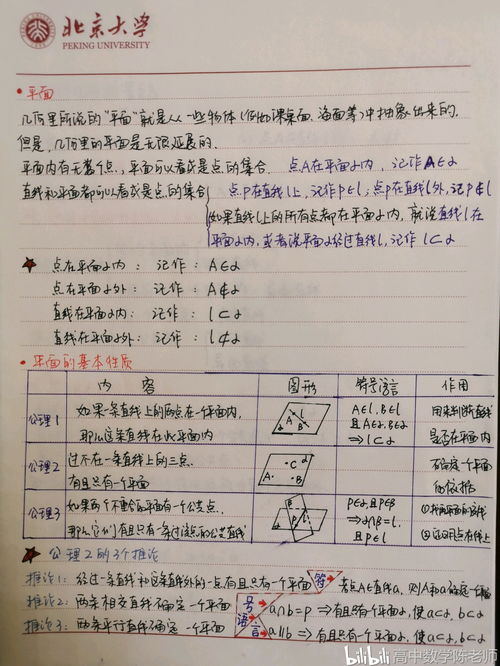 北京大学
PEKING UNIVERSITY
• 平面
几何里所说的“平面”就是从一些物体(例如课桌面、海面等)中抽象出来的,
但是,几何里的平面是无限延展的.
平面内有无数个点,平面可以看成是点的集合. 点A在平面α内,记作A∈α
直线和平面都可以看成是点的集合 点P在直线l上,记作P∈l;点P在直线l外,记P∉l
如果直线l上的所有点都在平面α内,就说直线l在
平面α内,或者说平面α经过直线l,记作 l⊂α
★ 点在平面α内: 记作: A∈α
点在平面α外: 记作: A∉α
直线在平面α内: 记作: l⊂α
直线在平面α外: 记作: l⊄α
• 平面的基本性质
内 容 图形 符号语言 作用
公理1 如果一条直线上的两点在一个平面内,
那么这条直线在此平面内
A B l α
A∈l, B∈l
且A∈α, B∈α
⇒ l⊂α
用来判断直线
是否在平面内
公理2 过不在一条直线上的三点,
有且只有一个平面
A• •B •C α
公理3 如果两个不重合的平面有一个公共点,
那么它们有且只有一条过该点的公共直线
P∈α, 且P∈β
⇒ α∩β=l,
且P∈l
★ 公理2的3个推论
推论1: 经过一条直线和这条直线外的一点有且只有一个平面 符
推论2: 两条相交直线确定一个平面 号 a∩b=P ⇒有且只有一个平面α,使a⊂α, b⊂α
推论3: 两条平行直线确定一个平面 语言 a∥b ⇒有且只有一个平面α,使a⊂α, b⊂α
bilibili 高中数学陈老师